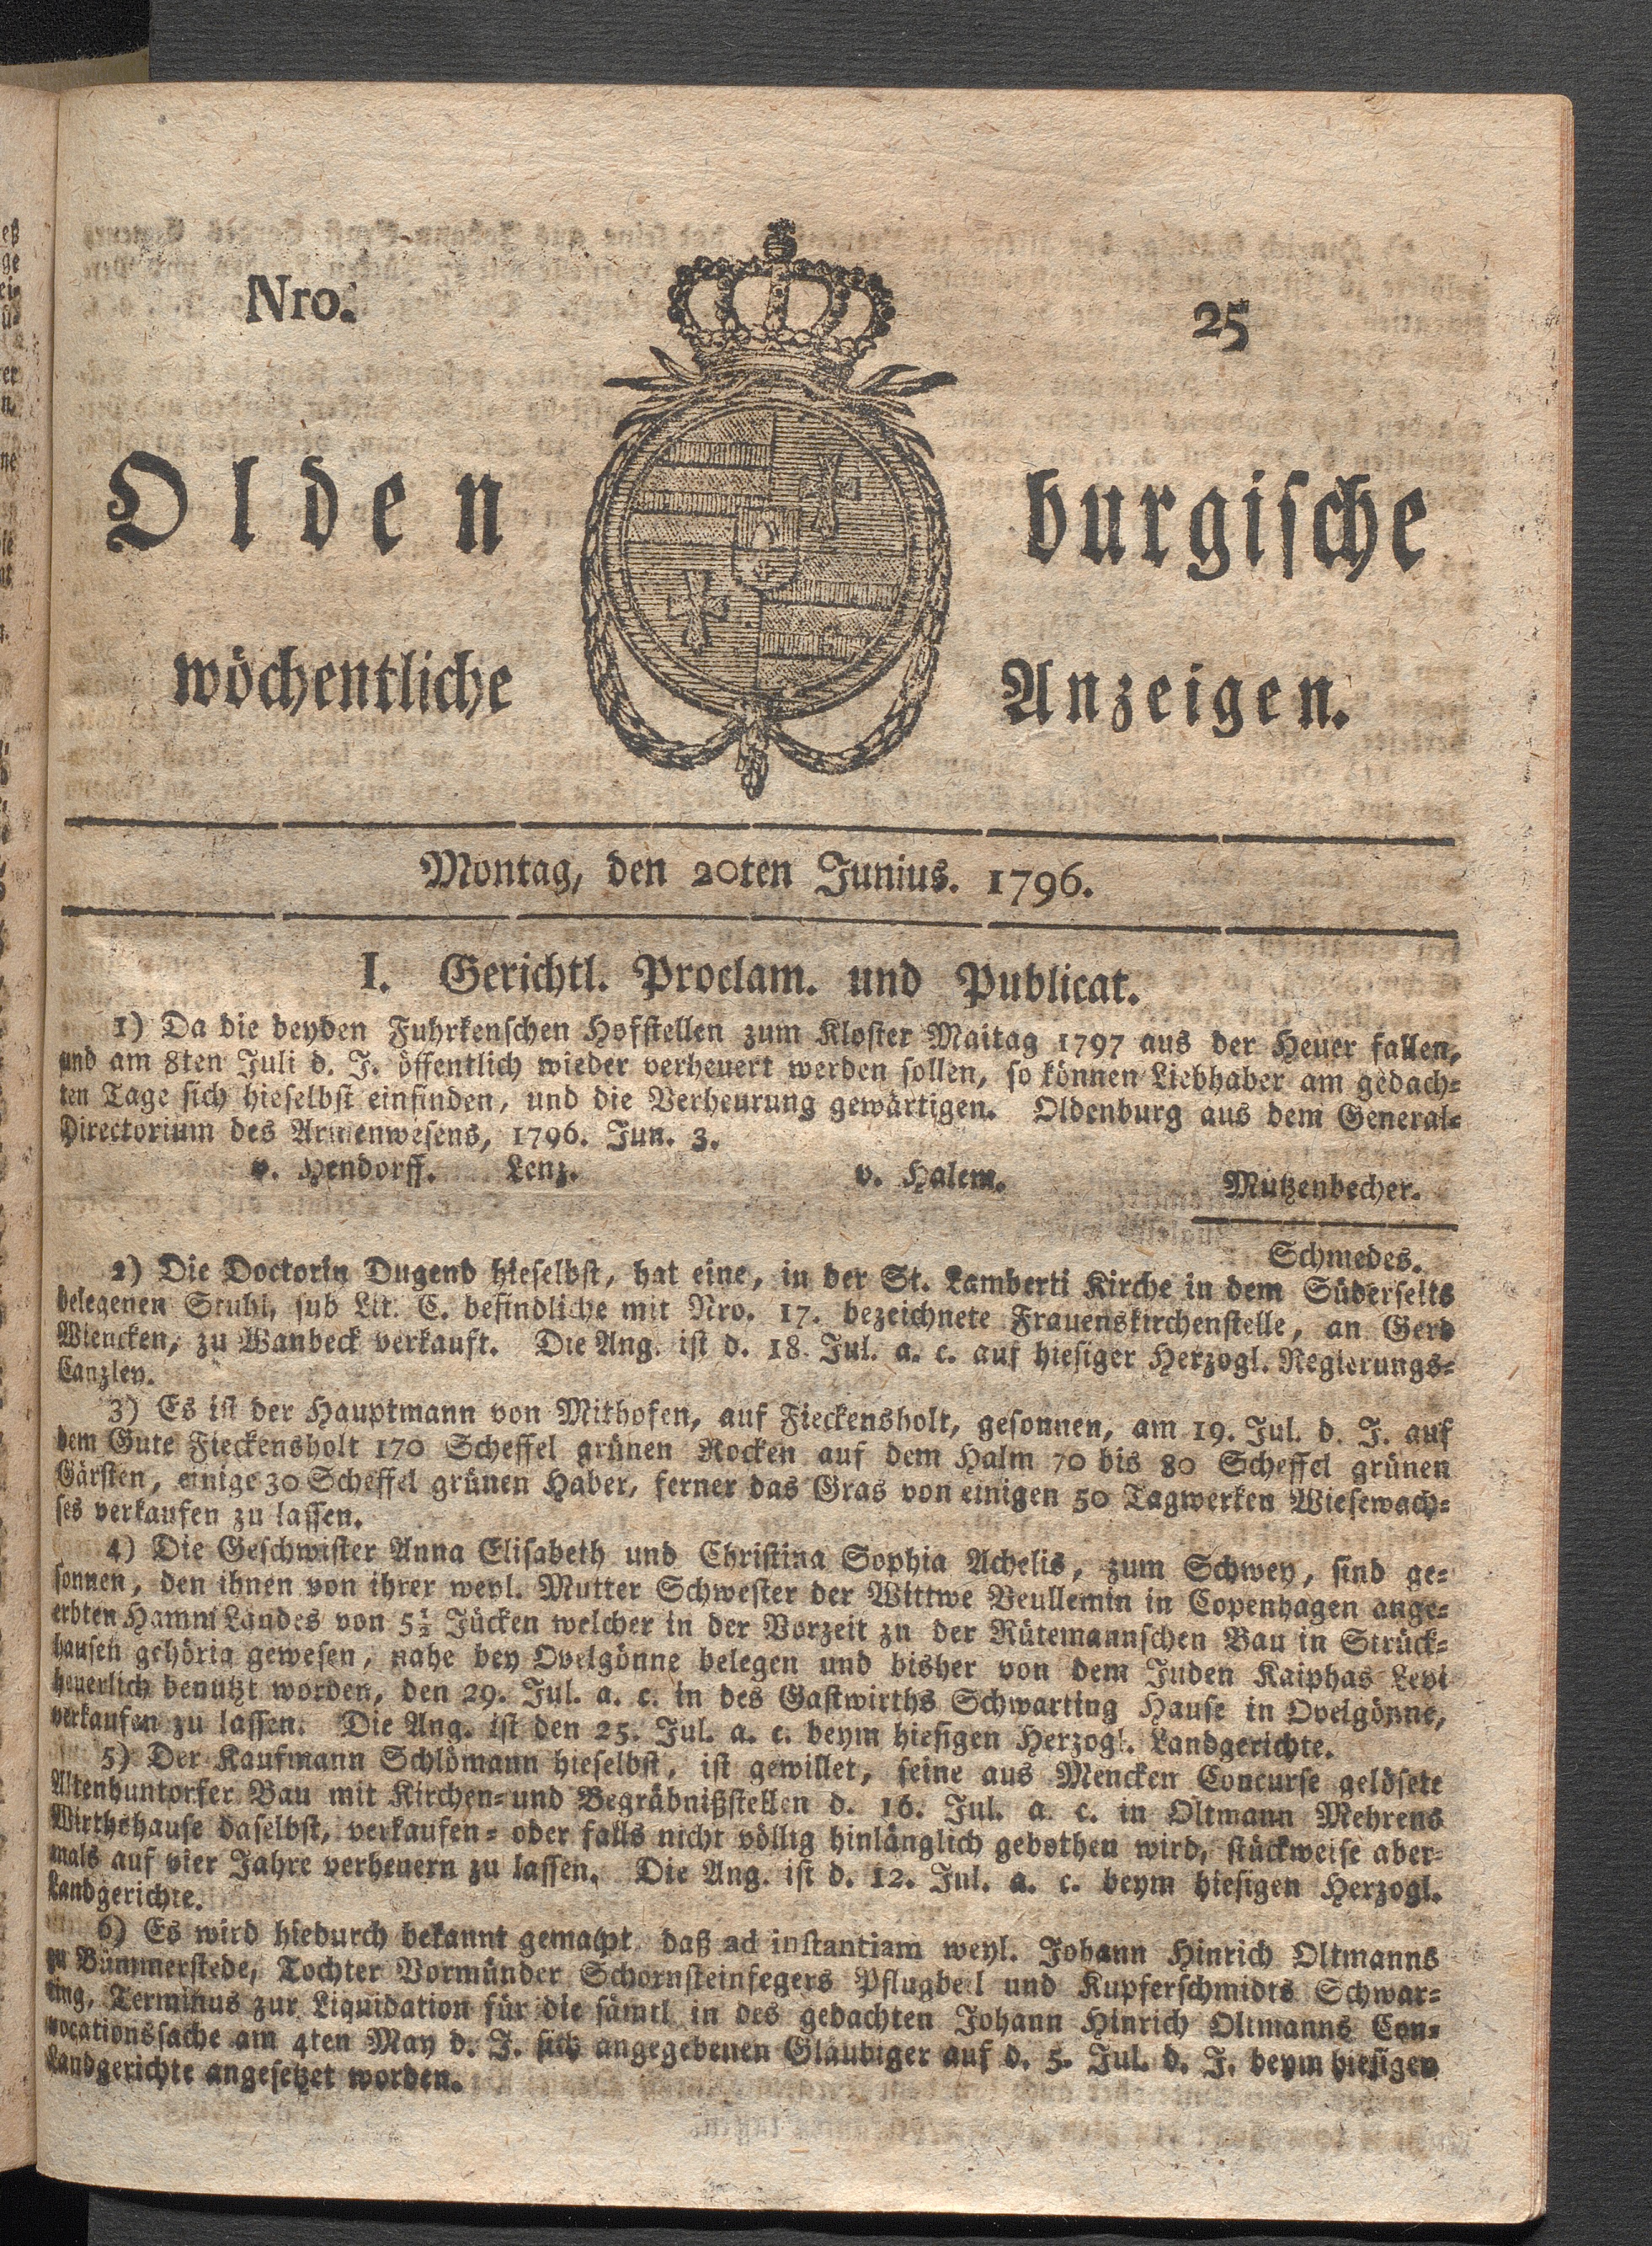 Nro. 25
Oldenburgische
wöchentliche Anzeigen.
Montag, den 20ten Junius. 1796.
I. Gerichtl. Proclam. und Publicat.
1) Da die beyden Fuhrkenschen Hofstellen zum Kloster Maitag 1797 aus der Heuer fallen,
und am 8ten Juli d. J. öffentlich wieder verheuert werden sollen, so können Liebhaber am gedach-
ten Tage sich hieselbst einfinden, und die Verheurung gewärtigen. Oldenburg aus dem General-
Directorium des Armenwesens, 1796. Jun. 3.
v. Hendorff. Lenz. v. Halem. Mutzenbecher.
Schmedes.
2) Die Doctorin Dugend hieselbst, hat eine, in der St. Lamberti Kirche in dem Süderseits
belegenen Stuhl, sub Lit. C. befindliche mit Nro. 17. bezeichnete Frauenskirchenstelle, an Gerd
Wiencken, zu Wanbeck verkauft. Die Ang. ist d. 18. Jul. a. c. auf hiesiger Herzogl. Regierungs-
Canzley.
3) Es ist der Hauptmann von Mithofen, auf Fieckensholt, gesonnen, am 19. Jul. d. J. auf
dem Gute Fieckensholt 170 Scheffel grünen Rocken auf dem Halm 70 bis 80 Scheffel grünen
Gärsten, einige 30 Scheffel grünen Haber, ferner das Gras von einigen 50 Tagwerken Wiesewach-
ses verkaufen zu lassen.
4) Die Geschwister Anna Elisabeth und Christina Sophia Achelis, zum Schwey, sind ge-
sonnen, den ihnen von ihrer weyl. Mutter Schwester der Wittwe Beullemin in Copenhagen ange-
erbten Hamm Landes von 5½ Jücken welcher in der Vorzeit zu der Rütemannschen Bau in Strück-
hausen gehörig gewesen, nahe bey Ovelgönne belegen und bisher von dem Juden Kaiphas Levi
heuerlich benutzt worden, den 29. Jul. a. c. in des Gastwirths Schwarting Hause in Ovelgönne,
verkaufen zu lassen. Die Ang. ist den 25. Jul. a. c. beym hiesigen Herzogl. Landgerichte.
5) Der Kaufmann Schlömann hieselbst, ist gewillet, seine aus Mencken Concurse gelösete
Altenhuntorfer Bau mit Kirchen- und Begräbnißstellen d. 16. Jul. a. c. in Oltmann Mehrens
Wirthshause daselbst, verkaufen- oder falls nicht völlig hinlänglich gebothen wird, stückweise aber-
mals auf vier Jahre verheuern zu lassen. Die Ang. ist d. 12. Jul. a. c. beym hiesigen Herzogl.
Landgerichte.
6) Es wird hiedurch bekannt gemacht, daß ad instantiam weyl. Johann Hinrich Oltmanns
zu Bümmerstede, Tochter Vormünder Schornsteinfegers Pflugbeil und Kupferschmidts Schwar-
ting, Terminus zur Liquidation für die sämtl. in des gedachten Johann Hinrich Oltmanns Con-
vocationssache am 4ten May d. J. sich angegebenen Gläubiger auf d. 5. Jul. d. J. beym hiesigen
Landgerichte angesetzet worden.